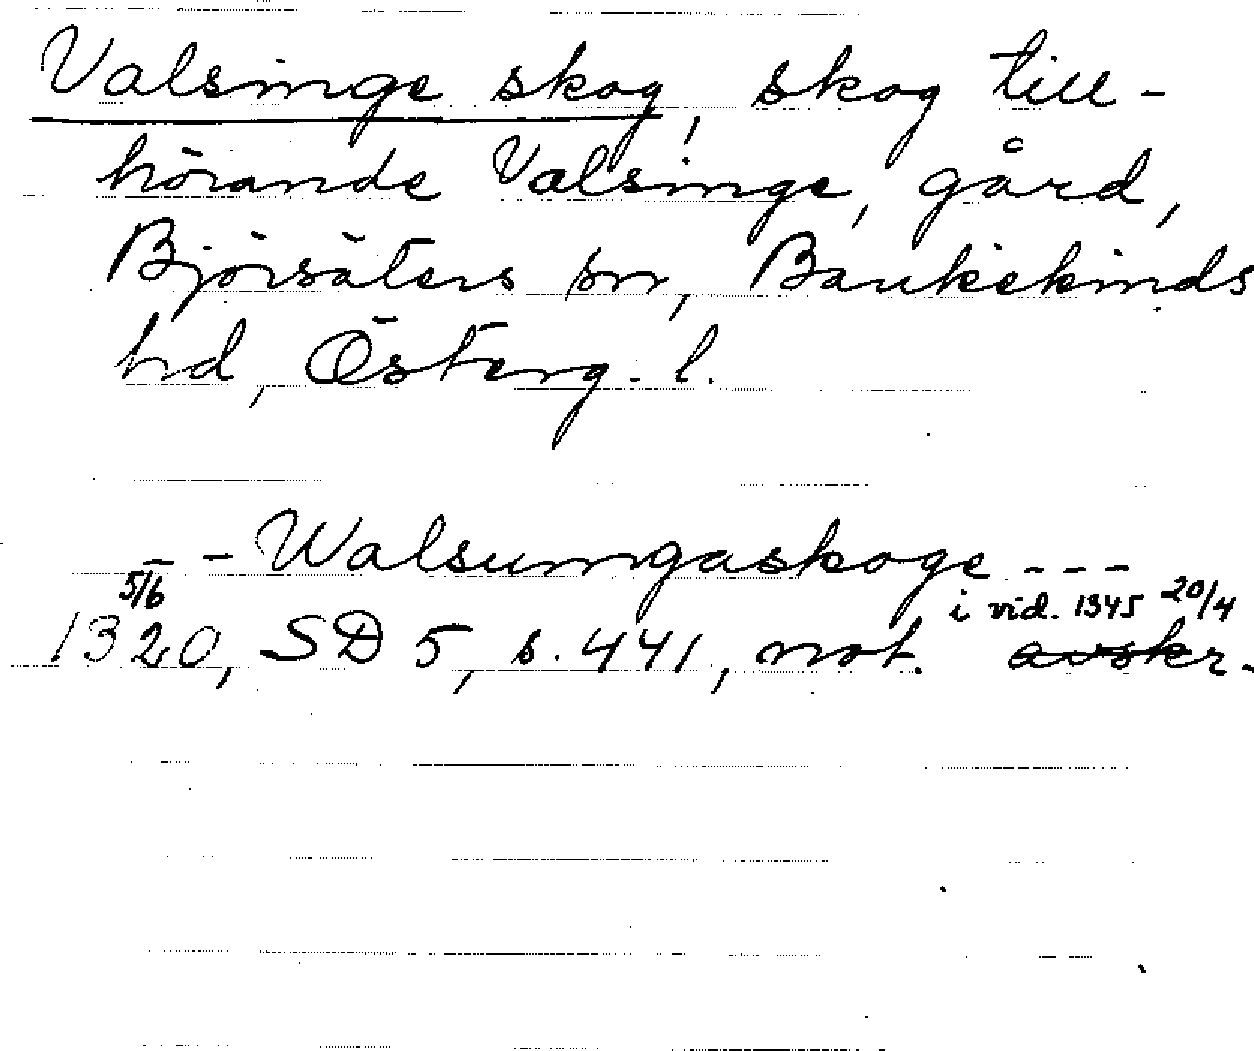 Valsinge skog, skog till-
hörande Valsinge, gård,
Björsäters sn, Bankekinds
hd, Österg. l.
- - Walsungaskoge - - -
5/6 i vid. 1345 20/4
1320, SD 5, s. 441, not. avskr.